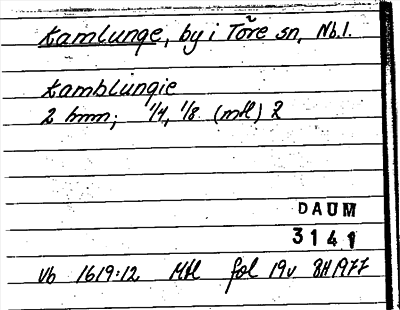 Kamlunge, by i Töre sn, Nb.l.
Kamblungie
2 bmn; 1/4, 1/8 (mtl) 2
DAUM
3141
Vb 1619:12 Mtl fol 19v BH 1977